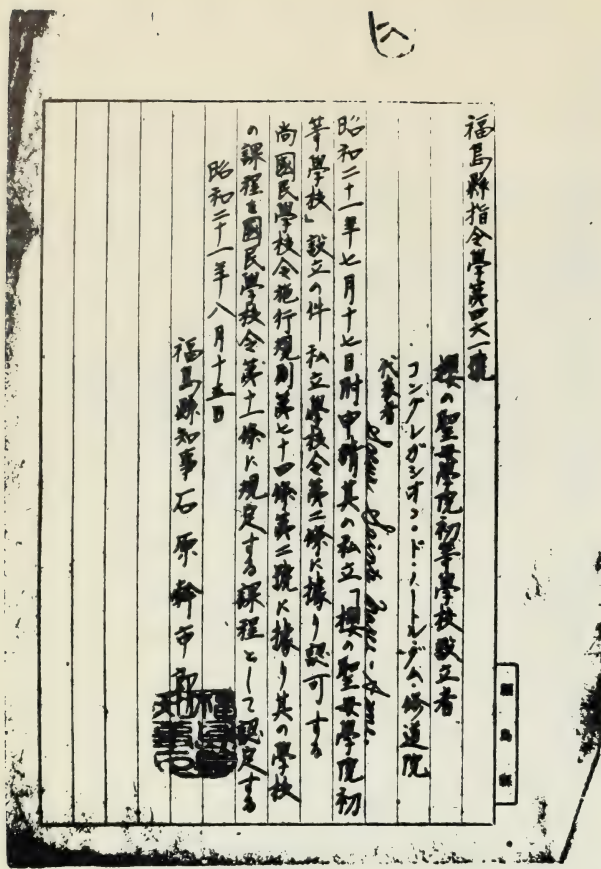 福島縣指令學第四六一號
櫻の聖母學院初等學校設立者
コングレガシオン・ド・ノートルダム・修道院
代表者 Soeur Saint
昭和二十一年七月十七日附申請其の私立「櫻の聖母學院初
等學校」設立の件私立學校令第二條に據り認可する
尚國民學校令施行規則第七十四條第二號に據り其の學校
の課程を國民學校令第十一條に規定する課程として認定する
昭和二十一年八月十五日
福島縣知事石原幹市郎
福島縣